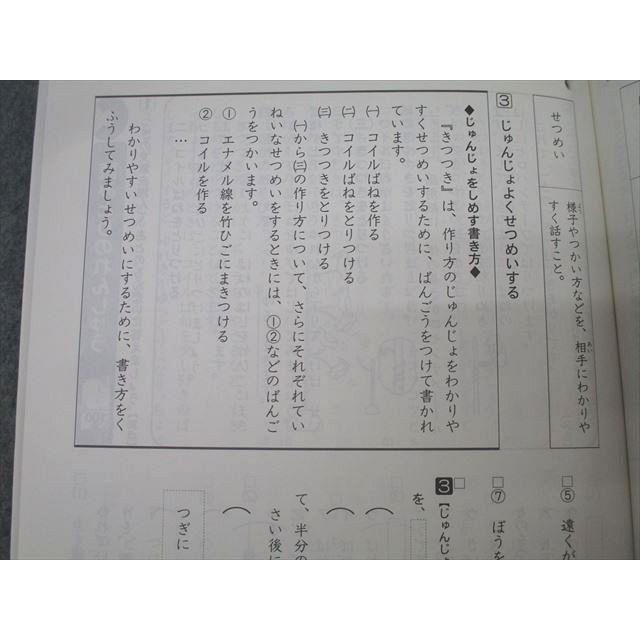 せつめい
様子やつかい方などを、相手にわかりや
すく話すこと。
3 じゅんじょよくせつめいする
◆じゅんじょをしめす書き方◆
『きつつき』は、作り方のじゅんじょをわかりや
すくせつめいするために、ばんごうをつけて書かれ
ています。
㈠ コイルばねを作る
㈡ コイルばねをとりつける
㈢ きつつきをとりつける
㈠から㈢の作り方について、さらにそれぞれてい
ねいなせつめいをするときには、①②などのばんご
うをつかいます。
① エナメル線を竹ひごにまきつける
② コイルを作る
…
わかりやすいせつめいにするために、書き方をく
ふうしてみましょう。
□⑤ 遠くが
□⑦ ぼうを
□3【じゅんじょ
を、
て、半分の
さい後に
つぎに